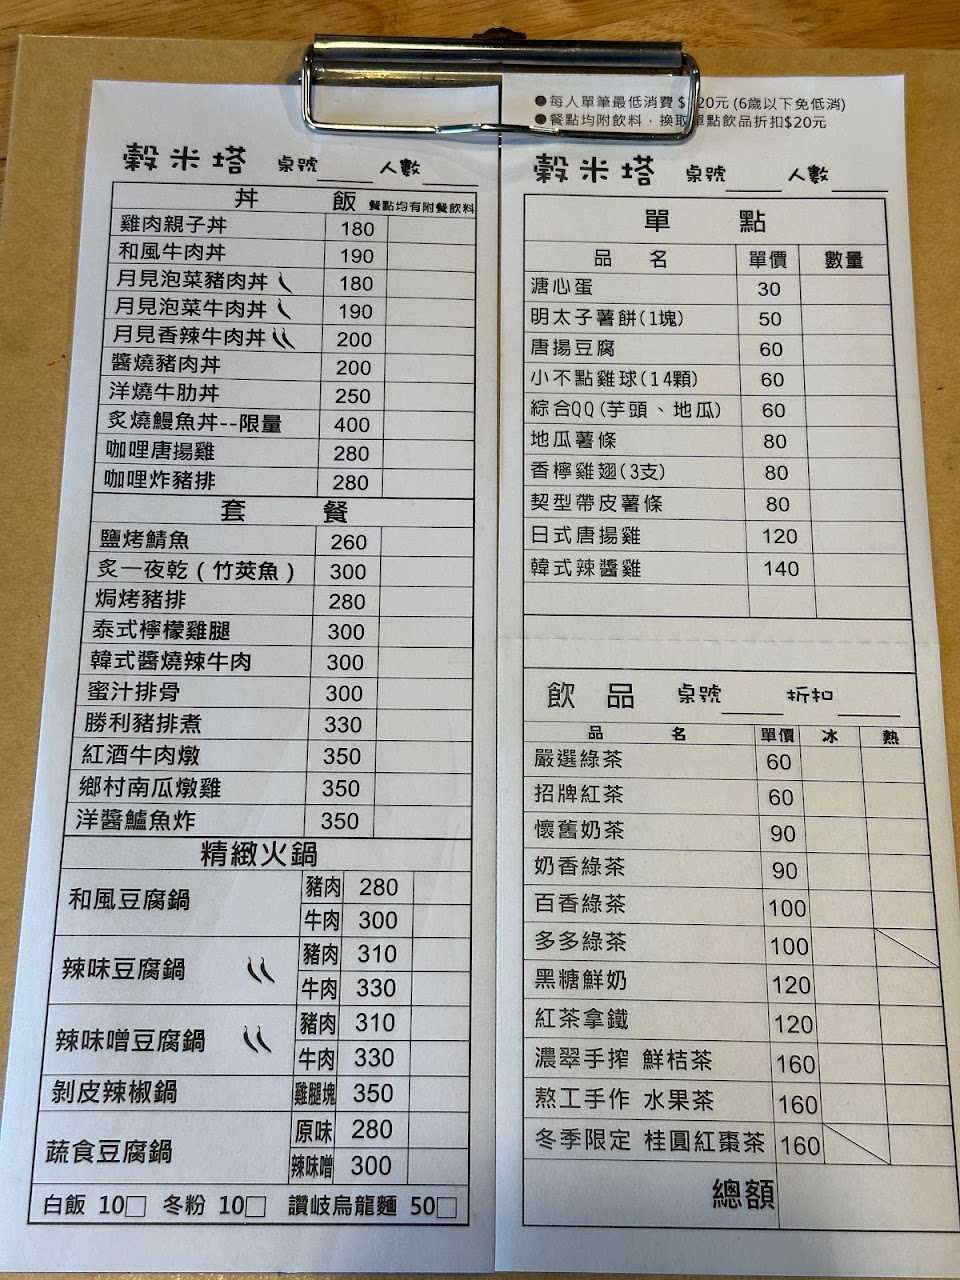 穀米塔 桌號 人數
丼 飯 餐點均有附餐飲料
雞肉親子丼 180
和風牛肉丼 190
月見泡菜豬肉丼 180
月見泡菜牛肉丼 190
月見香辣牛肉丼 200
醬燒豬肉丼 200
洋燒牛肋丼 250
炙燒鰻魚丼--限量 400
咖哩唐揚雞 280
咖哩炸豬排 280
套 餐
鹽烤鯖魚 260
炙一夜乾(竹莢魚) 300
焗烤豬排 280
泰式檸檬雞腿 300
韓式醬燒辣牛肉 300
蜜汁排骨 300
勝利豬排煮 330
紅酒牛肉燉 350
鄉村南瓜燉雞 350
洋醬鱸魚炸 350
精緻火鍋
和風豆腐鍋 豬肉 280
牛肉 300
辣味豆腐鍋 豬肉 310
牛肉 330
辣味噌豆腐鍋 豬肉 310
牛肉 330
剝皮辣椒鍋 雞腿塊 350
蔬食豆腐鍋 原味 280
辣味噌 300
白飯 10□ 冬粉 10□ 讚岐烏龍麵 50□
●每人單筆最低消費 $ 20元 (6歲以下免低消)
●餐點均附飲料，換取單點飲品折扣$20元
穀米塔 桌號 人數
單 點
品 名 單價 數量
溏心蛋 30
明太子薯餅(1塊) 50
唐揚豆腐 60
小不點雞球(14顆) 60
綜合QQ(芋頭、地瓜) 60
地瓜薯條 80
香檸雞翅(3支) 80
契型帶皮薯條 80
日式唐揚雞 120
韓式辣醬雞 140
飲 品 桌號 折扣
品 名 單價 冰 熱
嚴選綠茶 60
招牌紅茶 60
懷舊奶茶 90
奶香綠茶 90
百香綠茶 100
多多綠茶 100
黑糖鮮奶 120
紅茶拿鐵 120
濃翠手搾 鮮桔茶 160
熬工手作 水果茶 160
冬季限定 桂圓紅棗茶 160
總額